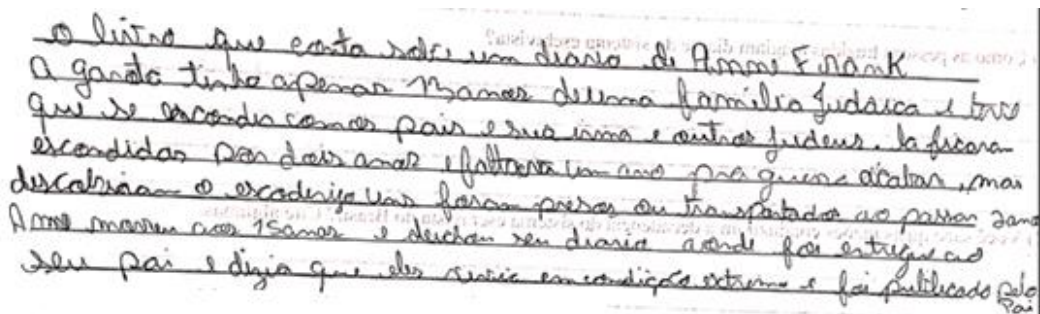 O livro que conta sobre um diario de Anne Frank
A garota tinha apenas 13 anos de uma família judaica e teve
que se esconder com os pais e sua irma e outros judeus. la ficaram
escondidos por dois anos e faltava um ano pra guerra acabar, mas
descobriram o escoderijo uns foram presos ou transportados ao passar 2anos
Anne morreu aos 15 anos e deichou seu diario aonde foi entregue ao
seu pai e dizia que eles vivia em condição extrema e foi publicado pelo
pai